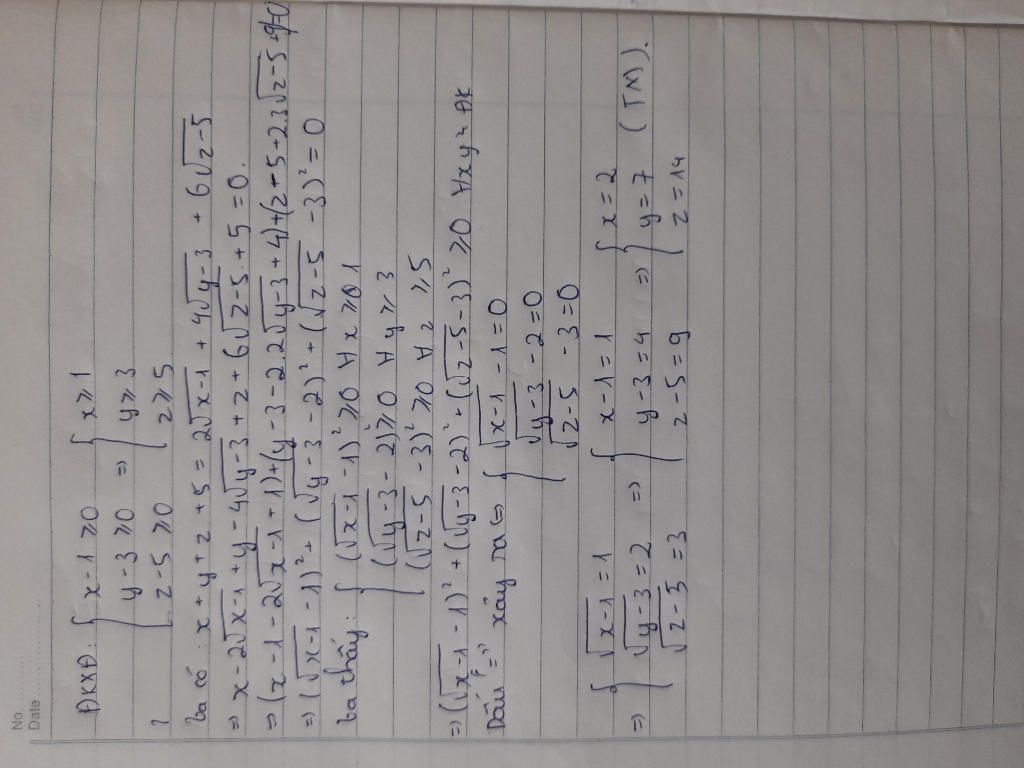 No.
Date
ĐKXĐ: { x-1 ≥ 0 { x ≥ 1
y-3 ≥ 0 => y ≥ 3
z-5 ≥ 0 z ≥ 5
Ta có: x+y+z+5 = 2√x-1 + 4√y-3 + 6√z-5
=> x-2√x-1 + y-4√y-3 + z + 6√z-5 + 5 = 0.
=> (x-1-2√x-1+1)+(y-3-2.2√y-3+4)+(z-5+2.3√z-5
=> (√x-1 -1)² + (√y-3 -2)² + (√z-5 -3)² = 0
ta thấy: { (√x-1 -1)² ≥ 0 ∀x ≥ 1
(√y-3 -2)² ≥ 0 ∀y ≥ 3
(√z-5 -3)² ≥ 0 ∀z ≥ 5
=> (√x-1 -1)² + (√y-3 -2)² + (√z-5 -3)² ≥ 0 ∀xyz ĐK
Dấu "=" xảy ra <=> { √x-1 -1 = 0
√y-3 -2 = 0
√z-5 -3 = 0
=> { √x-1 = 1 { x-1 = 1 { x = 2
√y-3 = 2 => y-3 = 4 => y = 7 (TM).
√z-5 = 3 z-5 = 9 z = 14